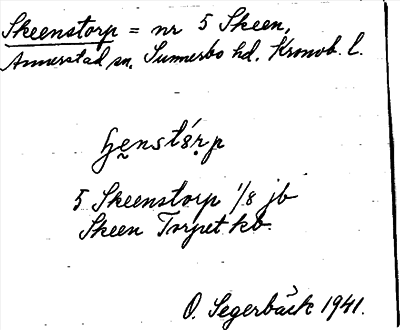 Skeenstorp = nr 5 Skeen,
Annerstad sn. Sunnerbo hd. Kronob. l.
5 Skeenstorp 1/8 jb
Skeen Torpet kb.
O. Segerbäck 1941.